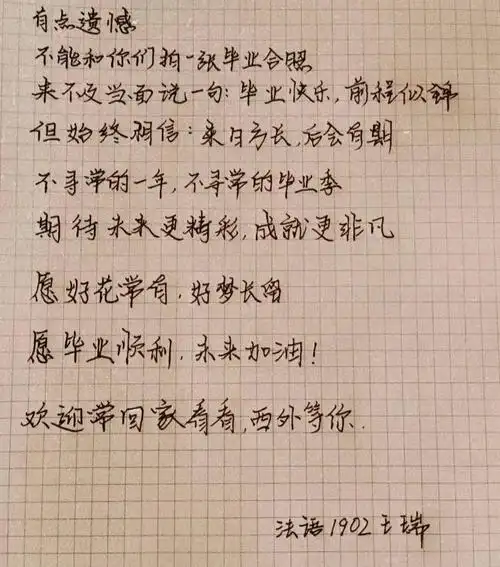 有点遗憾
不能和你们拍一张毕业合照
来不及当面说一句：毕业快乐，前程似锦
但始终相信：来日方长，后会有期
不寻常的一年，不寻常的毕业季
期待未来更精彩，成就更非凡
愿好花常有，好梦长留
愿毕业顺利，未来加油！
欢迎常回家看看，西外等你.
法语1902 王瑞